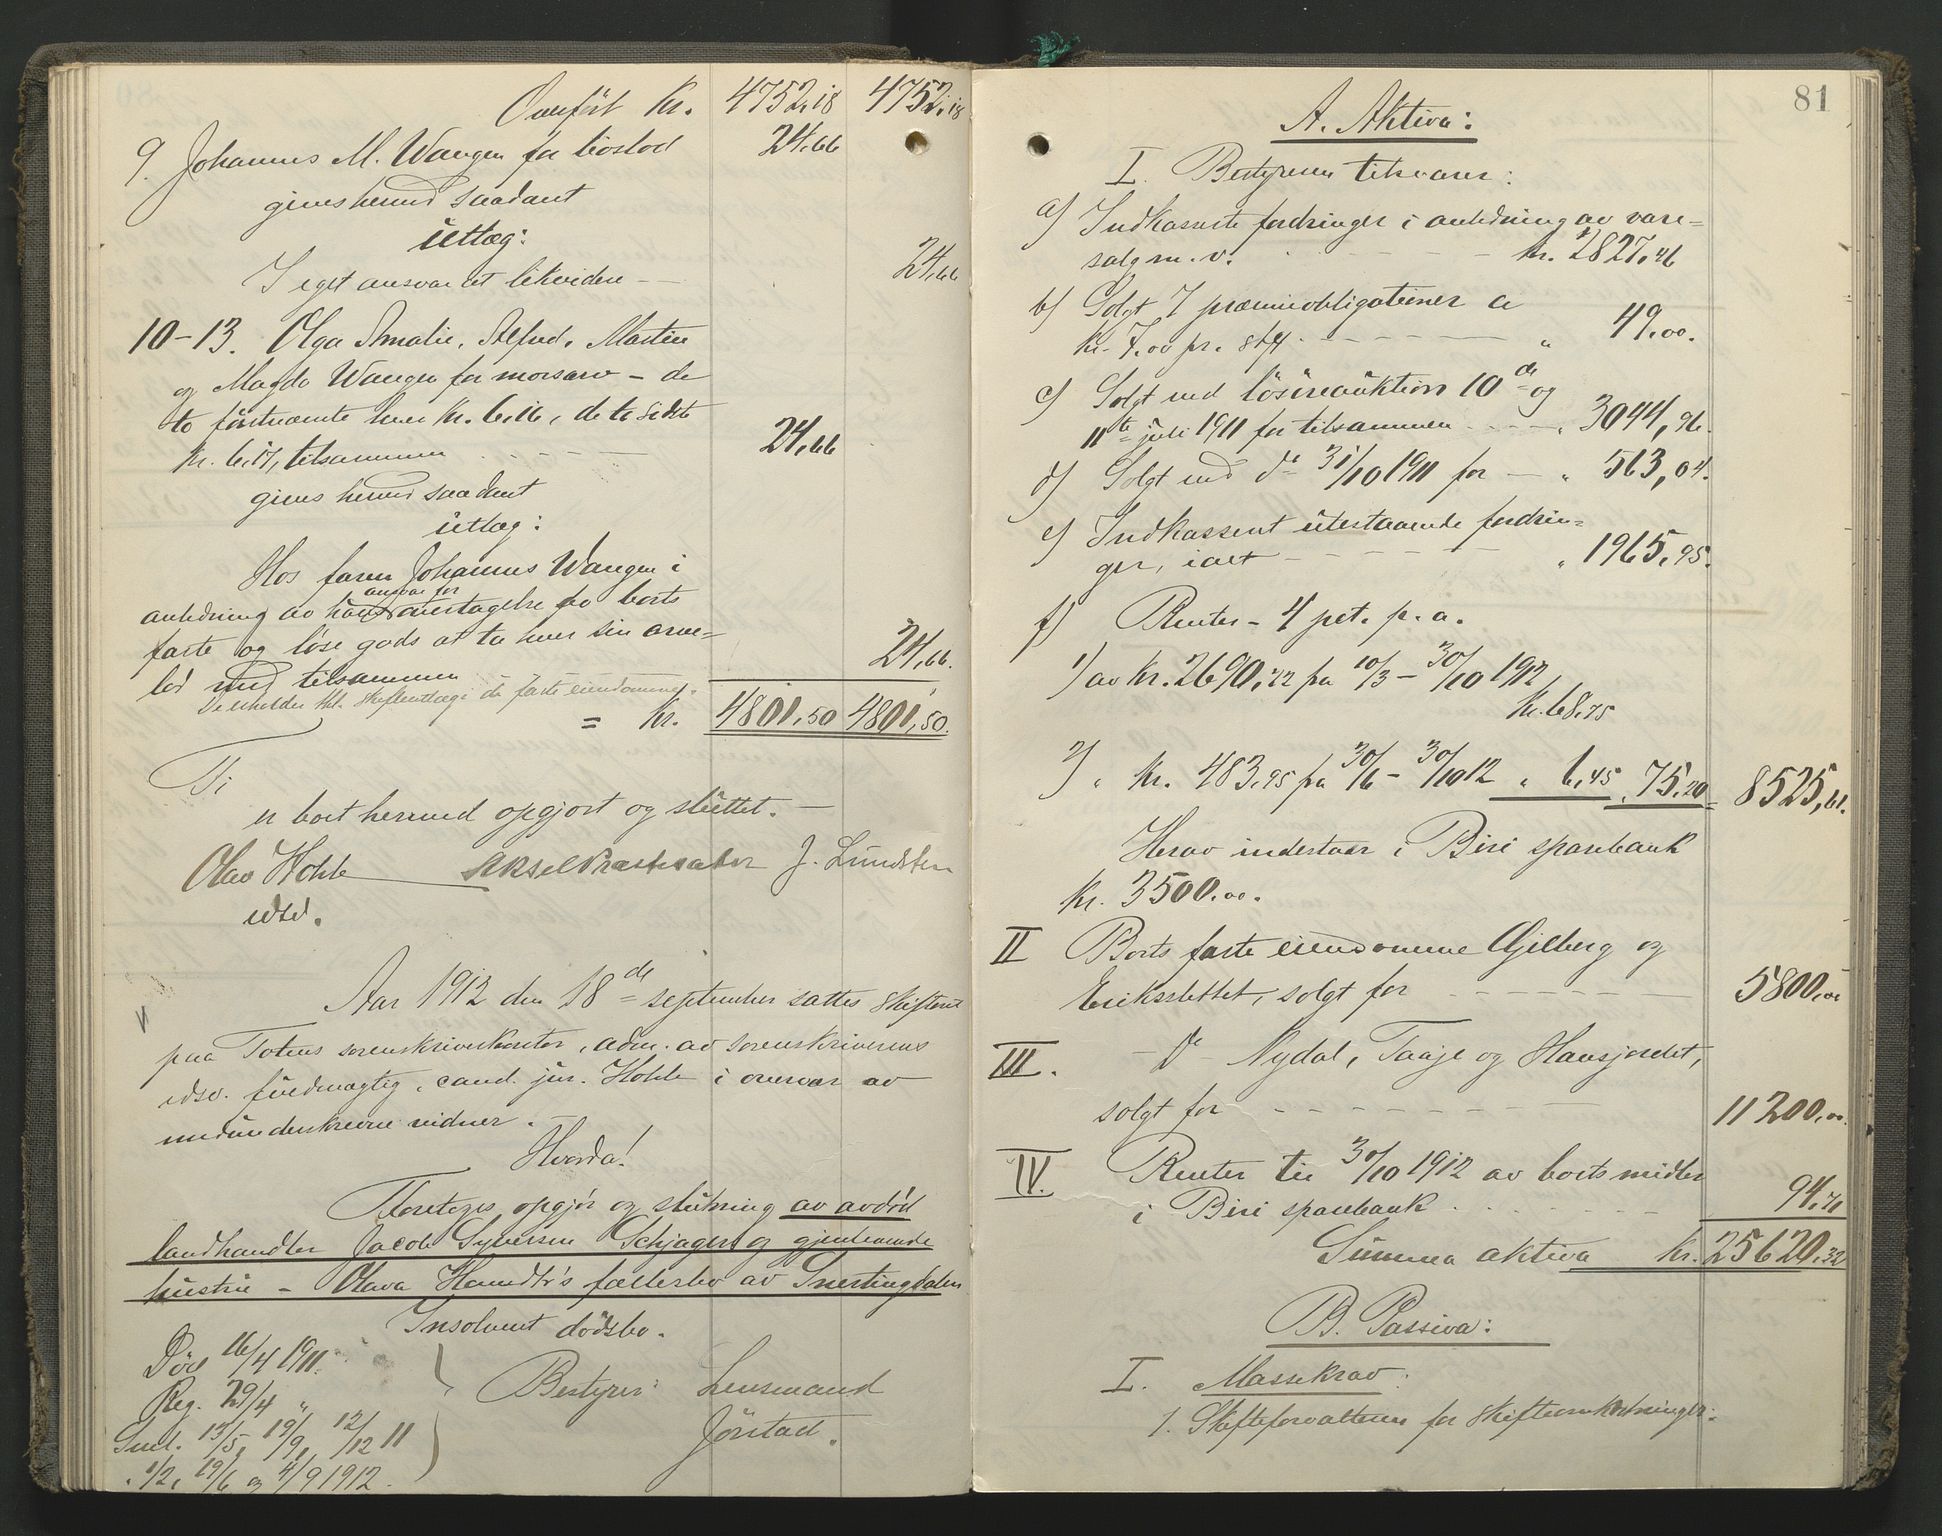 Overført Kr. 4752,18 4752,18
9. Johannes M. Wangen for boslod 24,66
gives herved saadant
utlæg:
I eget ansvar at likvidere — 24,66
10-13. Olga Amalie, Alfred, Martin
og Magda Wangen for morsarv - de
to førstnævnte hver kr. 6,16, de to sidste
kr. 6,17, tilsammen 24,66
gives herved saadant
utlæg:
Hos faren Johannes Wangen i
ansvar for
anledning av hans overtagelse av boets
faste og løse gods at ta hver sin arve-
lod med tilsammen 24,66.
De utholder skifteutlæg i de faste eiendomme.
= kr. 4801,50 4801,50.
Ti
er boet herved opgjort og sluttet. —
Olav Hohle Aksel J. Lundsten
edsv.
Aar 1912 den 18de september sattes skifteret
paa Totens sorenskriverkontor, adm. av sorenskriverens
edsv. fuldmægtig, cand. jur. Hohle i overvær av
nedunderskrevne vidner. —
Hvorda!
Foretoges opgjør og slutning av avdød
landhandler Jacob Syversen Schjager og gjenlevende
hustru - Olava Hansdtr's fællesbo av Snertingdalen
Insolvent dødsbo.
Død 16/4 1911.
Reg. 29/4 "
Saml. 13/5, 19/9, 12/12 11
" 1/2, 19/6 og 4/9 1912.
Bestyrer: Lensmand
Jørstad.
81
A. Aktiva:
I. Bestyreren tilsvarer:
a) Indkasserte fordringer i anledning av vare-
salg m. v. kr. 2827,46
b) Solgt 7 præmieobligationer a
kr. 7,00 pr. stk. " 49,00.
c) Solgt ved løsøreauktion 10de og
11te juli 1911 for tilsammen " 3044,96.
d) Solgt ved do 31/10 1911 for — " 563,04.
e) Indkassert utestaaende fordrin-
ger, ialt " 1965,95.
f) Renter - 4 pct. p. a.
1) av kr. 2690,22 fra 10/3 - 30/10 1912
kr. 68,75
2) " kr. 483,95 fra 30/6 - 30/10 12 " 6,45 " 75,20 = 8525,61.
Herav indestaar i Biri sparebank
kr. 3500,00.
II Boets faste eiendomme Gjilberg og
Erikslettet, solgt for 5800,00
III. - do - Nydal, Taaje og Hansjordet,
solgt for 11200,00.
IV. Renter til 30/10 1912 av boets midler
i Biri sparebank 94,71
Summa aktiva kr. 25620,32
B. Passiva:
I. Massekrav:
1. Skifteforvalteren for skifteomkostninger: